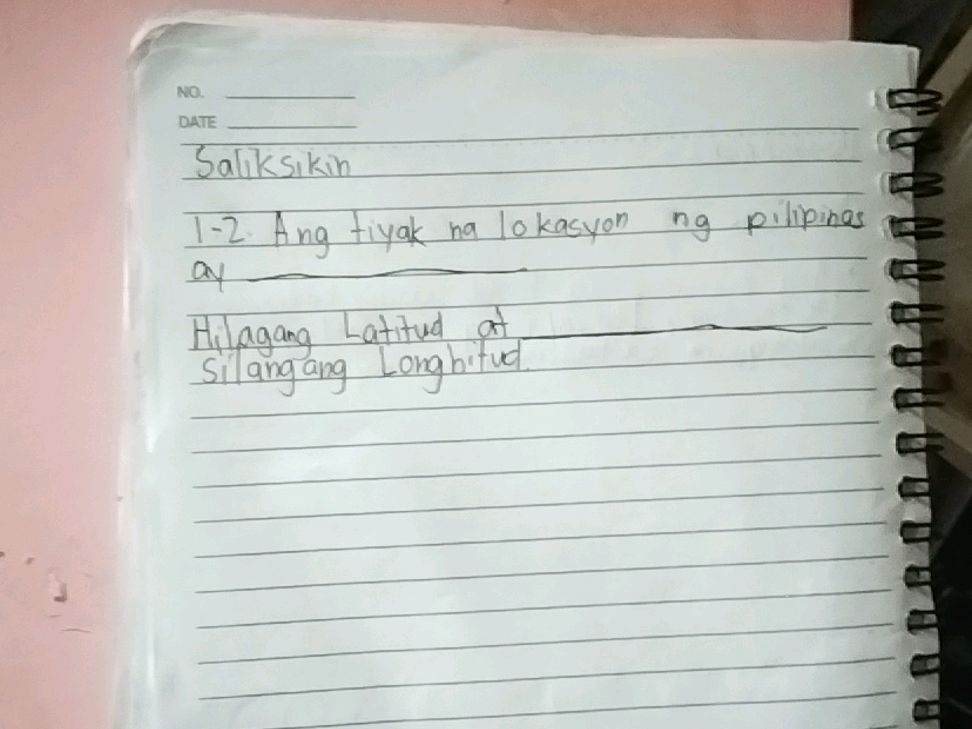 NO.
DATE
Saliksikin
1-2. Ang tiyak na lokasyon ng pilipinas
ay
Hilagang Latitud at
Silangang Longhitud.